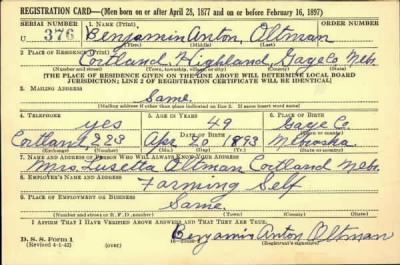 REGISTRATION CARD—(Men born on or after April 28, 1877 and on or before February 16, 1897)
SERIAL NUMBER 1. NAME (Print) ORDER NUMBER
U 376 Benjamin Anton Oltman
(First) (Middle) (Last)
2. PLACE OF RESIDENCE (Print)
Cortland, Highland, Gage Co Nebr.
(Number and street) (Town, township, village, or city) (County) (State)
[THE PLACE OF RESIDENCE GIVEN ON THE LINE ABOVE WILL DETERMINE LOCAL BOARD
JURISDICTION; LINE 2 OF REGISTRATION CERTIFICATE WILL BE IDENTICAL]
3. MAILING ADDRESS
Same.
[Mailing address if other than place indicated on line 2. If same insert word same]
4. TELEPHONE 5. AGE IN YEARS 6. PLACE OF BIRTH
yes 49 Gage Co.
DATE OF BIRTH
Cortland 223 Apr 20 1893 Nebraska
(Exchange) (Number) (Mo.) (Day) (Yr.) (State or country)
7. NAME AND ADDRESS OF PERSON WHO WILL ALWAYS KNOW YOUR ADDRESS
Mrs. Lusetta Oltman Cortland Nebr.
8. EMPLOYER'S NAME AND ADDRESS
Farming Self
9. PLACE OF EMPLOYMENT OR BUSINESS
Same.
(Number and street or R. F. D. number) (Town) (County) (State)
I AFFIRM THAT I HAVE VERIFIED ABOVE ANSWERS AND THAT THEY ARE TRUE.
D. S. S. Form 1
(Revised 4-1-42) (over) Benjamin Anton Oltman
(Registrant's signature)